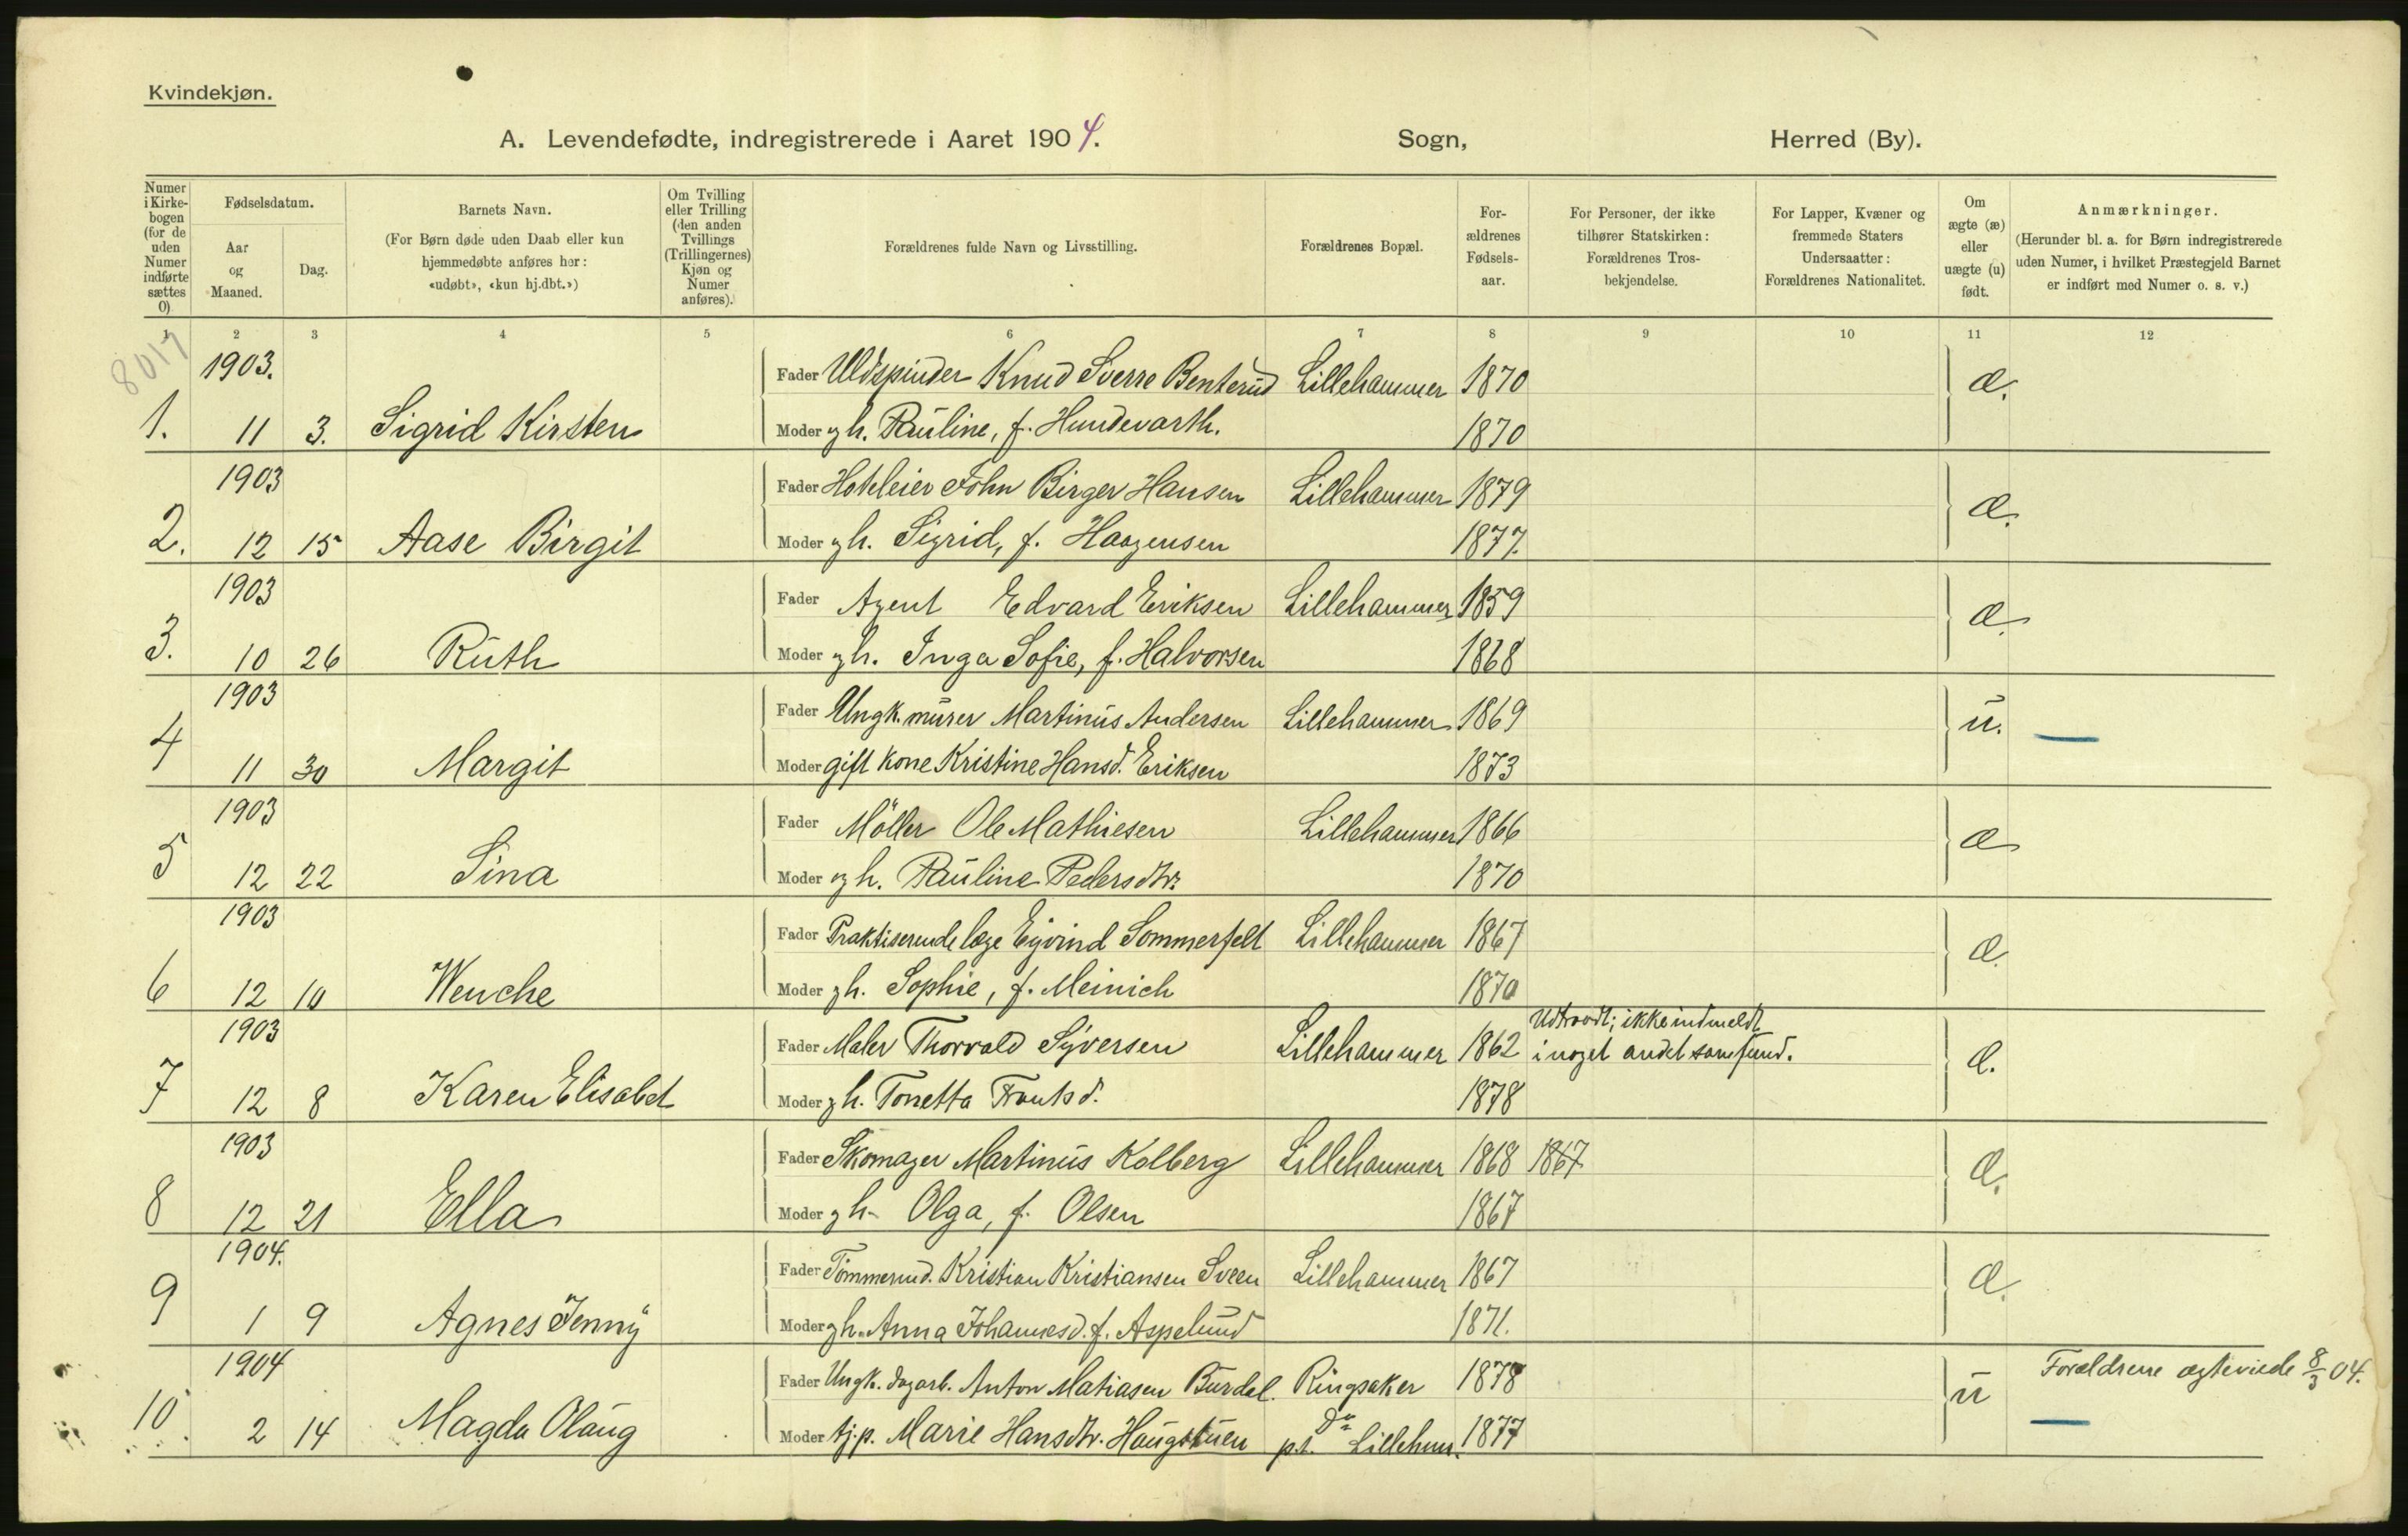 Kvindekjøn.
A. Levendefødte, indregistrerede i Aaret 1904. Sogn, Herred (By).
Numer i Kirkebogen (for de uden Numer indførte sættes 0)
Fødselsdatum.
Aar og Maaned.
Dag.
Barnets Navn.
(For Børn døde uden Daab eller kun hjemmedøbte anføres her: «udøbt», «kun hj.dbt.»)
Om Tvilling eller Trilling (den anden Tvillings (Trillingernes) Kjøn og Numer anføres).
Forældrenes fulde Navn og Livsstilling.
Forældrenes Bopæl.
Forældrenes Fødselsaar.
For Personer, der ikke tilhører Statskirken: Forældrenes Trosbekjendelse.
For Lapper, Kvæner og fremmede Staters Undersaatter: Forældrenes Nationalitet.
Om ægte (æ) eller uægte (u) født.
Anmærkninger.
(Herunder bl. a. for Børn indregistrerede uden Numer, i hvilket Præstegjeld Barnet er indført med Numer o. s. v.)
1 2 3 4 5 6 7 8 9 10 11 12
8017
1903. Fader Uldspinder Knud Sverre Benterud Lillehammer 1870 æ.
1. 11 3. Sigrid Kirsten Moder gh. Pauline, f. Hundevarth. 1870
1903 Fader Hoteleier John Birger Hansen Lillehammer 1879 æ.
2. 12 15 Aase Birgit Moder gh. Sigrid, f. Haagensen 1877.
1903 Fader Agent Edvard Eriksen Lillehammer 1859 æ.
3. 10 26 Ruth Moder gh. Inga Sofie, f. Halvorsen 1868
1903 Fader Ungk. murer Martinus Andersen Lillehammer 1869 u.
4 11 30 Margit Moder gift kone Kristine Hansd. Eriksen 1873
1903 Fader Möller Ole Mathiesen Lillehammer 1866 æ
5 12 22 Sina Moder gh. Pauline Pedersdtr. 1870
1903 Fader Praktiserende læge Eyvind Sommerfelt Lillehammer 1867 æ.
6 12 10 Wenche Moder gh. Sophie, f. Meinich 1870
1903 Fader Maler Thorvald Syversen Lillehammer 1862 Udtraadt; ikke indmeldt i noget andet samfund. æ.
7 12 8 Karen Elisabet Moder gh. Tonetta 1878
1903 Fader Skomager Martinus Kolberg Lillehammer 1868 1867 æ.
8 12 21 Ella Moder gh. Olga, f. Olsen 1867
1904. Fader Tömmermd. Kristian Kristiansen Sveen Lillehammer 1867 æ.
9 1 9 Agnes Jenny Moder gh. Anna Johannesd. f. Aspelund 1871.
1904 Fader Ungk. dagarb. Anton Matiasen Burdal. Ringsaker 1878 u Forældrene ægteviede 8/3 04.
10. 2 14 Magda Olaug Moder tj.p. Marie Hansdtr. Haugstuen Do p.t. Lillehmr. 1877